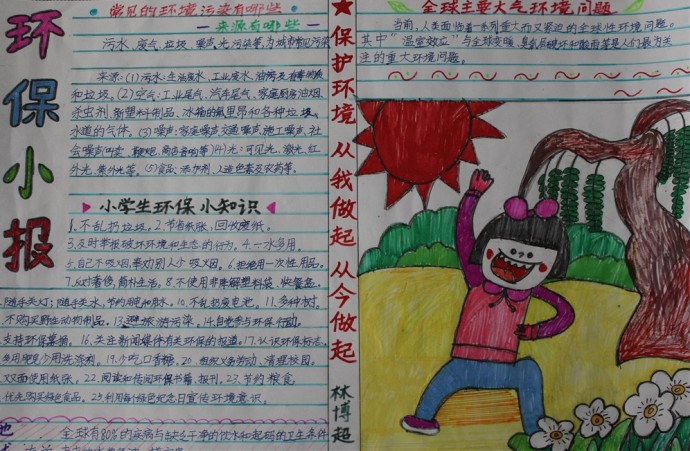 环保小报
常见的环境污染有哪些
来源有哪些
污水、废气、垃圾、噪声、光污染等,为城市常见污染
来源:(1)污水:生活废水、工业废水、油污及
和垃圾。(2)空气:工业尾气、汽车尾气、家庭厨房油烟、
杀虫剂、新塑料制品、冰箱的氟里昂和各种垃圾、
水道的气体。(3)噪声:家庭噪声交通噪声、施工噪声、社
会噪声叫卖、鞭炮、商店音响等(4)光:可见光、激光、红
外光、紫外光等。(5)食品:添加剂、人造色素及农药等。
小学生环保小知识
1.不乱扔垃圾。2.节省纸张,回收废纸。
3.及时举报破坏环境和生态的行为。4.一水多用。
5.自己不吸烟,奉劝别人少吸烟。6.拒绝用一次性用品。
7.反对奢侈,简朴生活。8.不使用非降解塑料袋、快餐盒。
随手关灯;随手关水,节约用电和用水。10.不乱扔废电池。11.多种树。
不购买野生动物制品。13.避免旅游污染。14.自觉参与环保行动。
支持环保募捐。16.关注新闻媒体有关环保的报道。17.认识环保标志。
多用肥皂少用洗涤剂。19.少吃口香糖。20.组织义务劳动,清理校园。
双面使用纸张。22.阅读和传阅环保书籍、报刊。23.节约粮食。
优先购买绿色食品。25.利用每个绿色纪念日宣传环境意识。
全球有80%的疾病与缺乏干净的饮水和起码的卫生条件
★保护环境 从我做起 从今做起
林博超
全球主要大气环境问题
当前,人类面临着一系列重大而又紧迫的全球性环境问题。
其中"温室效应"与全球变暖、臭氧层破坏和酸雨等是人们最为关
注的重大环境问题。